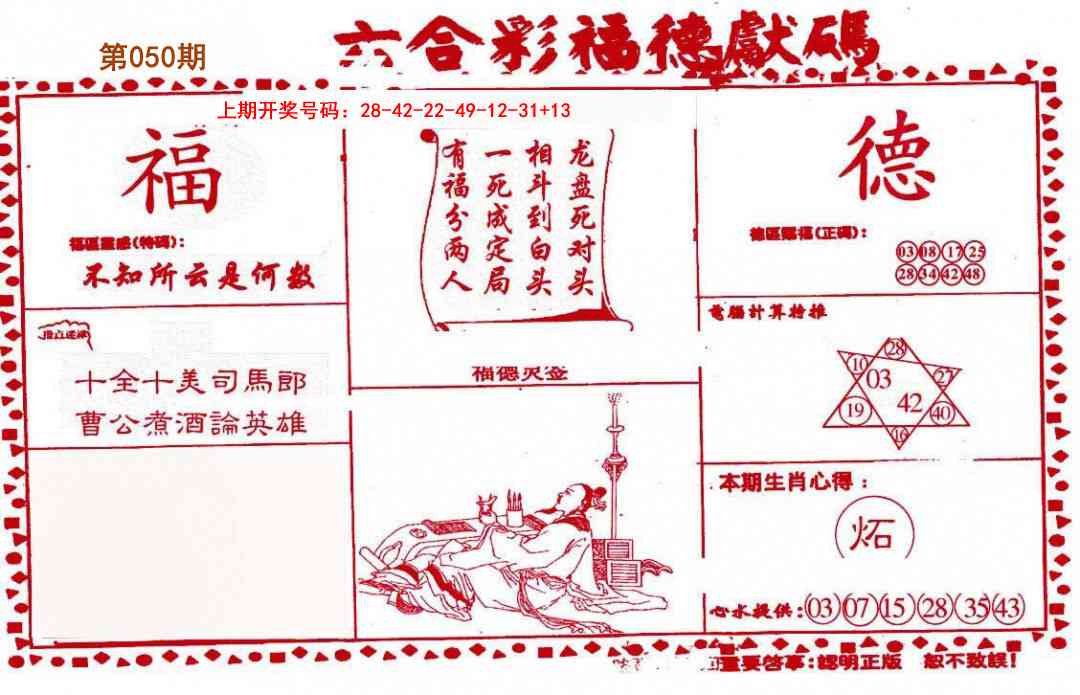 第050期
六合彩福德獻碼
上期开奖号码：28-42-22-49-12-31+13
福
福區靈感(特碼)：
不知所云是何数
十全十美司馬郎
曹公煮酒論英雄
龙盘死对头
相斗到白头
一死成定局
有福分两人
福德灵签
德
德區賜福(正碼)：
03 08 17 25
28 34 42 48
電腦計算特推
28
10
03
27
19
42
40
16
本期生肖心得：
炻
心水提供：03 07 15 28 35 43
重要啓事：認明正版 恕不致誤！